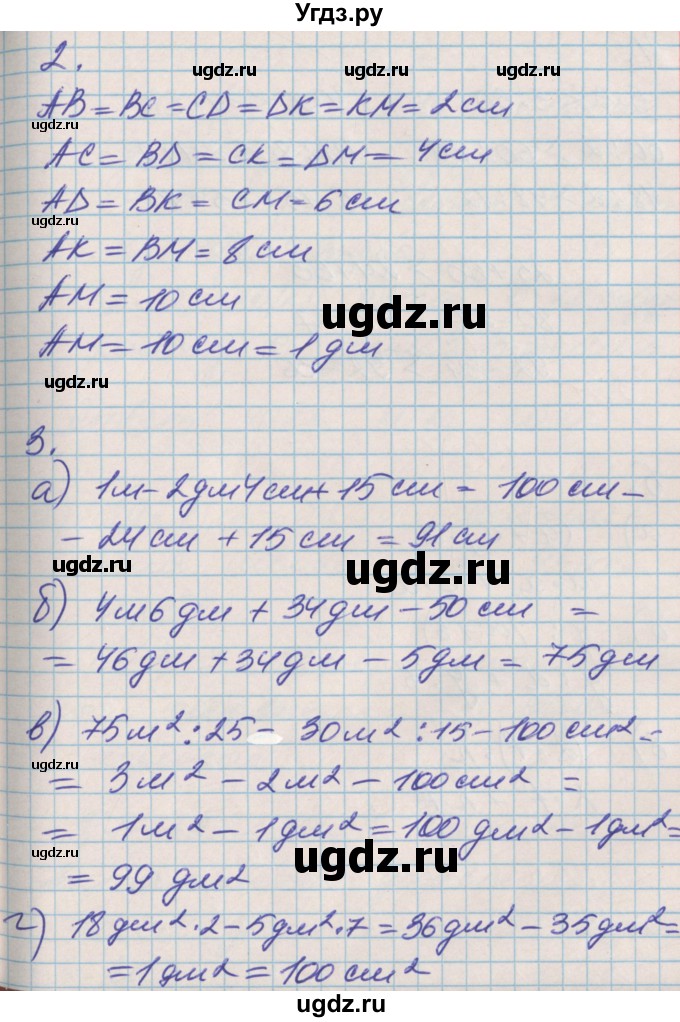 Угдз.ру
ugdz.ru ugdz.ru ugdz.ru
2.
AB = BC = CD = DK = KM = 2 см
ugdz.ru
AC = BD = CK = DM = 4 см
AD = BK = CM = 6 см
ugdz.ru
AK = BM = 8 см
AM = 10 см
ugdz.ru
AM = 10 см = 1 дм
ugdz.ru
3.
а) 1 м - 2 дм 4 см + 15 см = 100 см -
- 24 см + 15 см = 91 см
ugdz.ru
ugdz.ru
б) 4 м 6 дм + 34 дм - 50 см =
= 46 дм + 34 дм - 5 дм = 75 дм
в) 75 м² : 25 - 30 м² : 15 - 100 см² =
ugdz.ru
= 3 м² - 2 м² - 100 см² =
= 1 м² - 1 дм² = 100 дм² - 1 дм² =
ugdz.ru
ugdz.ru
= 99 дм²
г) 18 дм² · 2 - 5 дм² · 7 = 36 дм² - 35 дм² =
= 1 дм² = 100 см²
ugdz.ru
ugdz.ru